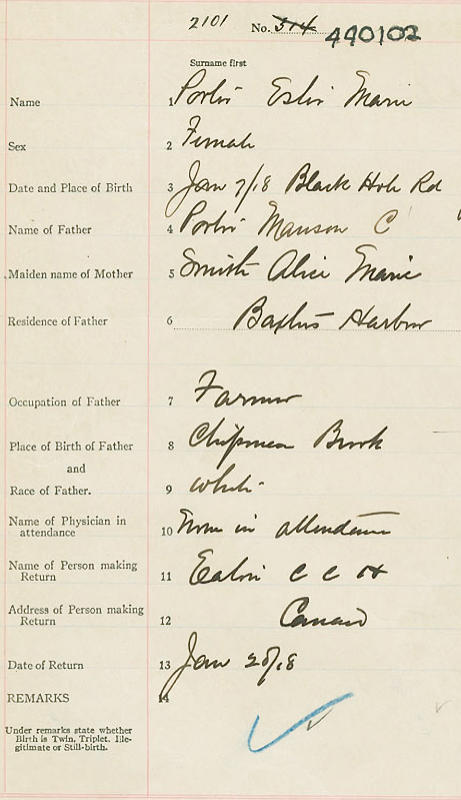 2101 No. 314 490102
Surname first
Name 1 Porter Eslie Marie
Sex 2 Female
Date and Place of Birth 3 Jan 7/18 Black Hole Rd
Name of Father 4 Porter Manson C
Maiden name of Mother 5 Smith Alice Marie
Residence of Father 6 Baxters Harbor
Occupation of Father 7 Farmer
Place of Birth of Father 8 Chipman Brook
and
Race of Father. 9 White
Name of Physician in
attendance 10 None in attendance
Name of Person making
Return 11 Eaton C C H
Address of Person making
Return 12 Canard
Date of Return 13 Jan 20/18
REMARKS 14
Under remarks state whether
Birth is Twin, Triplet. Ille-
gitimate or Still-birth.